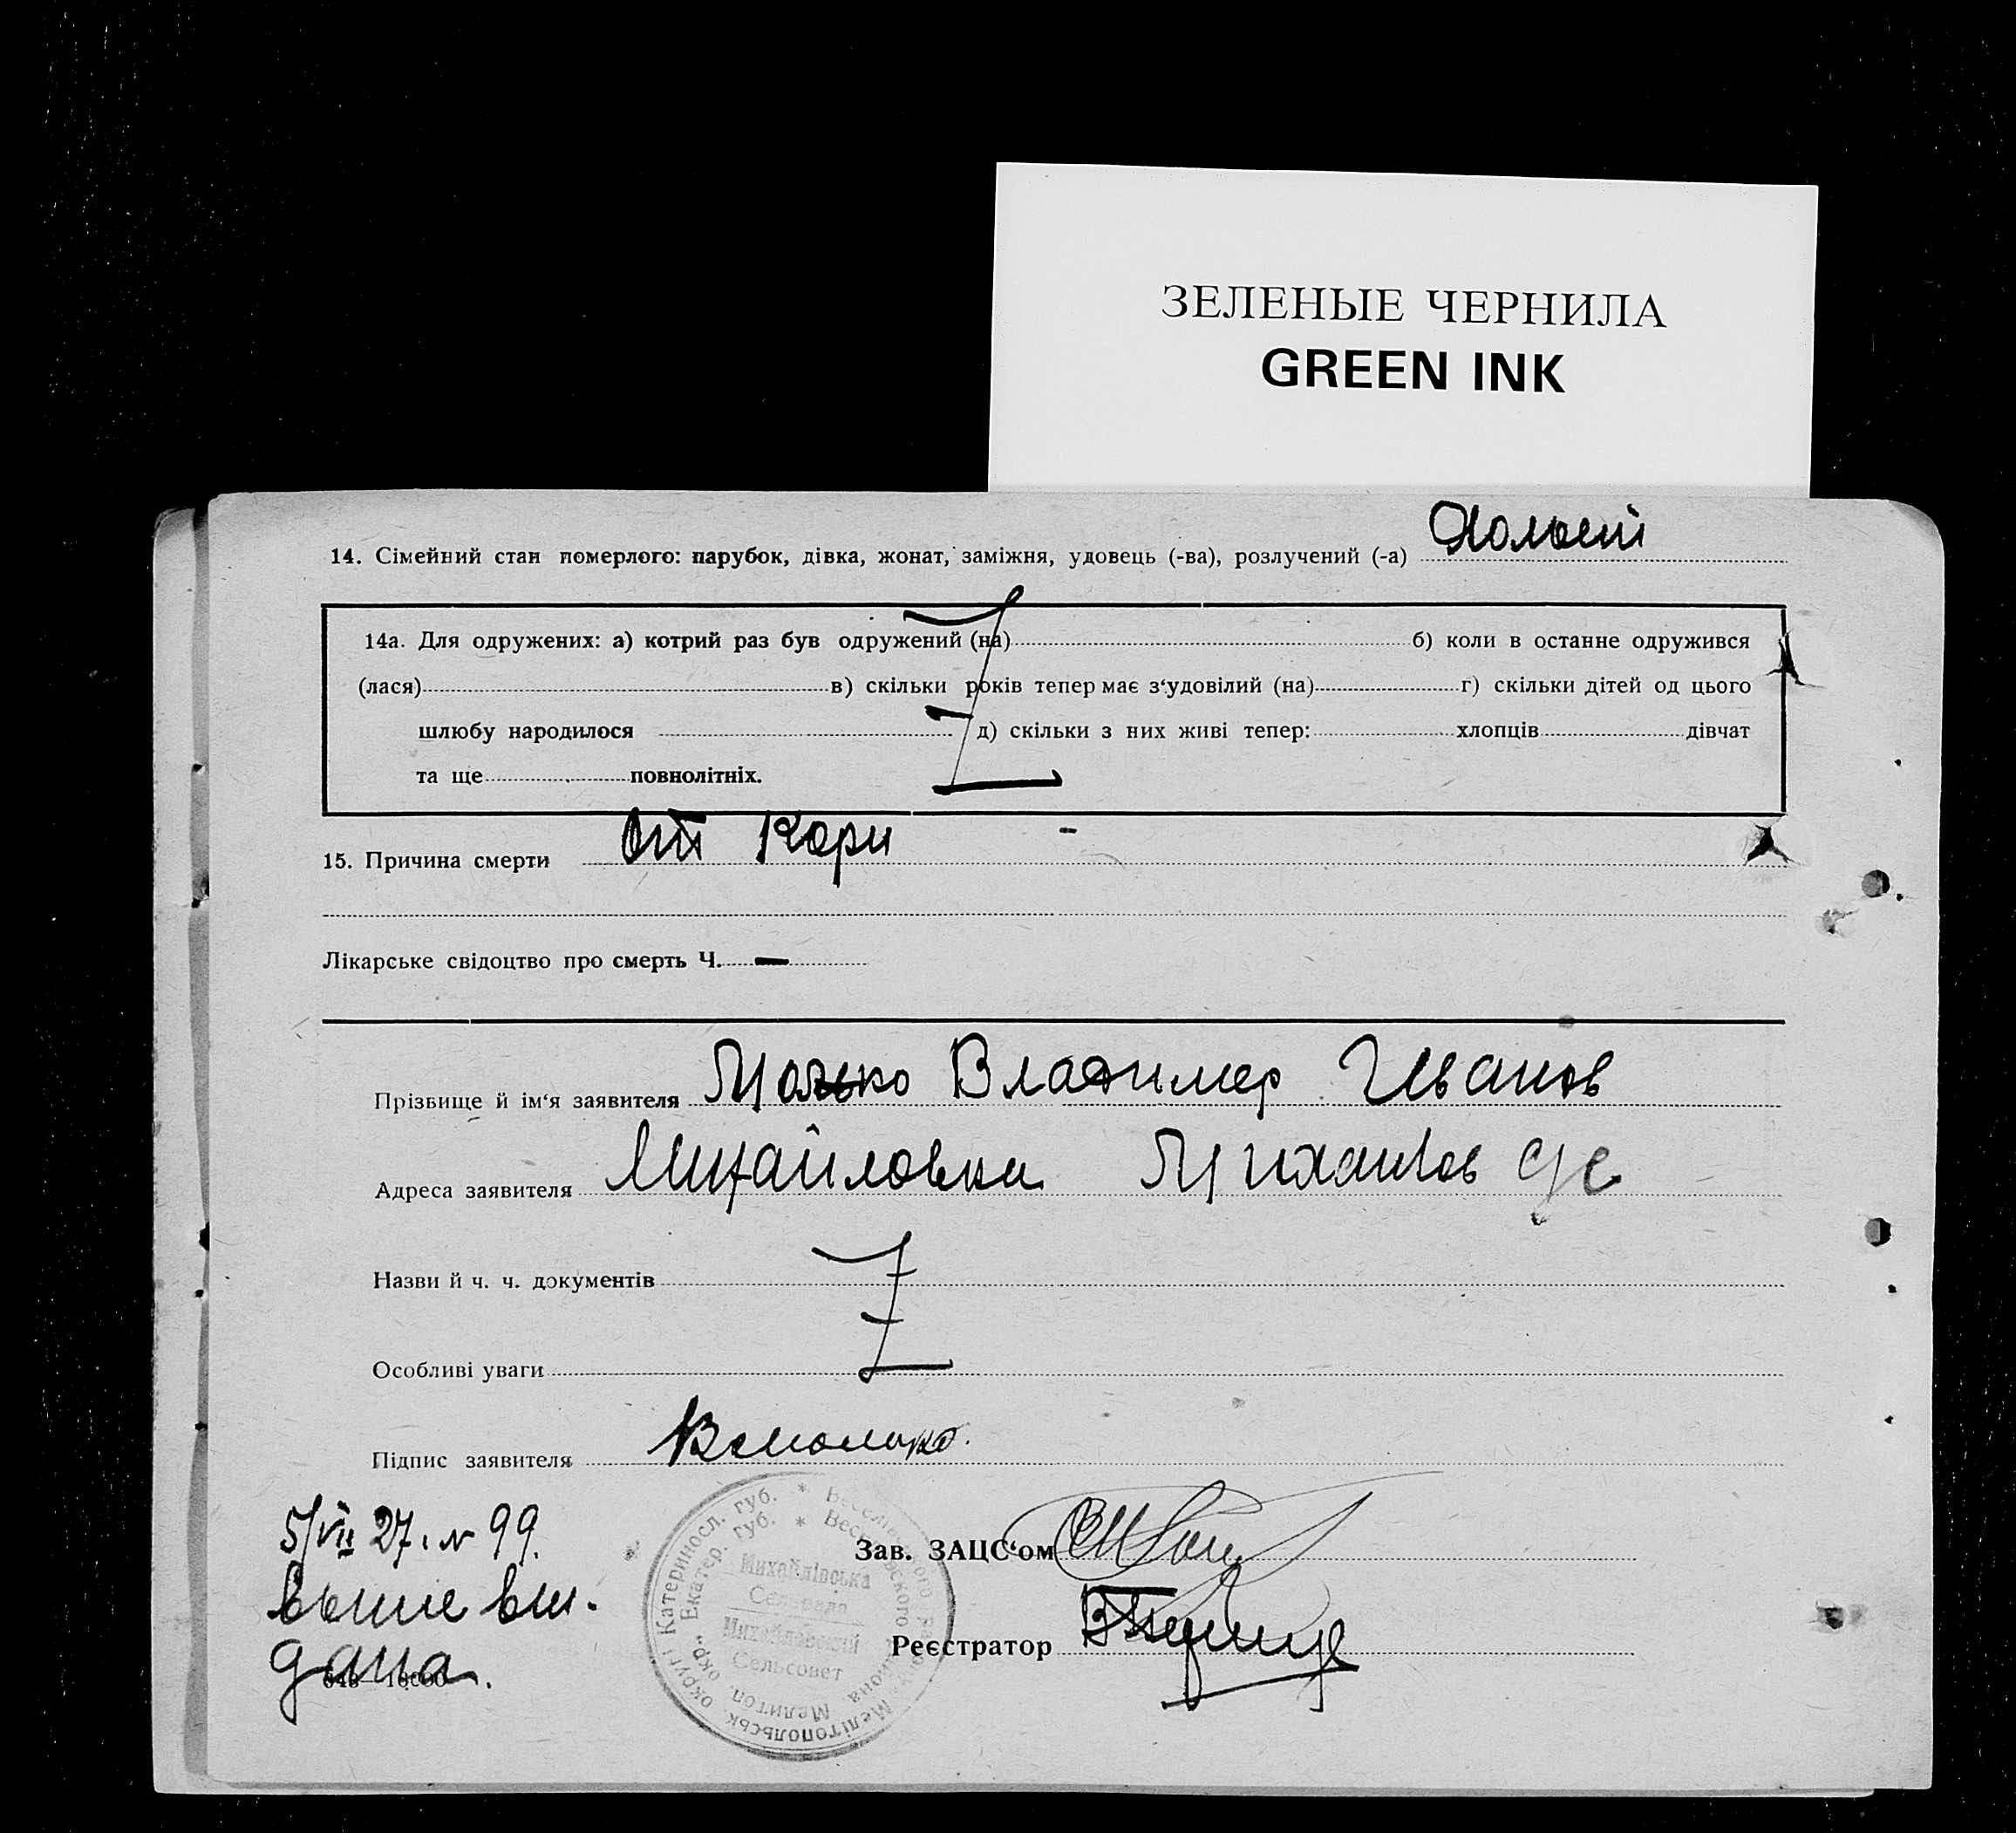 ЗЕЛЕНЫЕ ЧЕРНИЛА
GREEN INK
14. Сімейний стан померлого: парубок, дівка, жонат, заміжня, удовець (-ва), розлучений (-а)
14а. Для одружених: а) котрий раз був одружений (на) б) коли в останне одружився
(лася) в) скільки років тепер має з‘удовілий (на) г) скільки дітей од цього
шлюбу народилося д) скільки з них живі тепер: хлопців дівчат
та ще повнолітніх.
15. Причина смерти От Кори
Лікарське свідоцтво про смерть Ч. —
Прізвище й ім‘я заявителя Молько Владимер Иванов
Адреса заявителя Михайловка
Назви й ч. ч. документів
Особливі уваги
Підпис заявителя
5/VII 27. N 99.
Зав. ЗАЦС‘ом
Реєстратор
дана.
Катериносл. губ. * Веселівського
Екатер. губ. *
Мелітопольськ. округі
Мелитоп. окр.
Михайлівська
Сельрада
Михайловский
Сельсовет